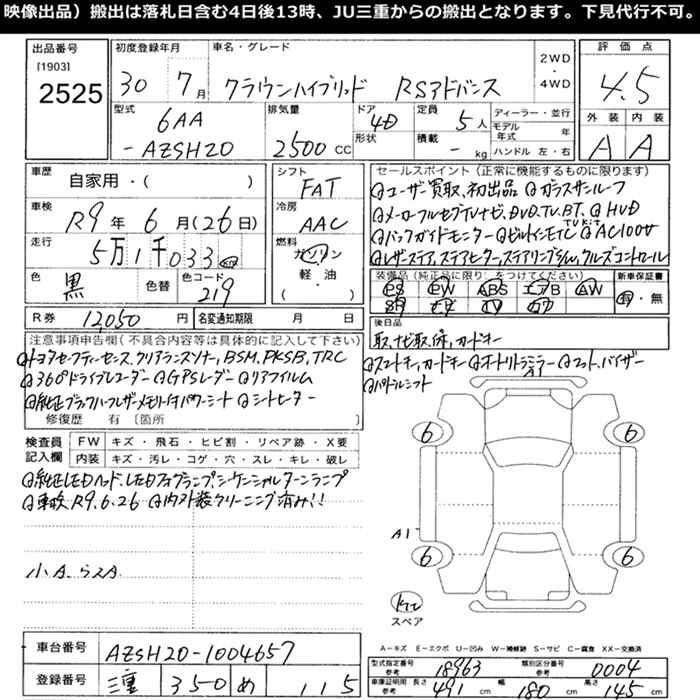 映像出品）搬出は落札日含む4日後13時、JU三重からの搬出となります。下見代行不可。
出品番号 [1903] 2525
初度登録年月 30年 7月
車名・グレード クラウンハイブリッド RSアドバンス
2WD・4WD
評価点 4.5
外装 A 内装 A
型式 6AA-AZSH20
排気量 2500 CC
ドア形状 4D
定員 5人
積載 - kg
ディーラー・並行
モデル年式 年
ハンドル 左・右
車歴 自家用・( )
車検 R9年 6月(26日)
走行 5万1千033 km
色 黒 色替 色コード 219
シフト FAT
冷房 AAC
燃料 ガソリン 軽油 ( )
セールスポイント（正常に機能するものに限ります）
ユーザー買取、初出品 ガラスサンルーフ
メーカーフルセグTVナビ、DVD、TV、BT、HUD
TVkit
バックガイドモニター ビルトインETC AC100V
レザーステア、ステアヒーター、ステアリングSW、クルーズコントロール
装備品（純正品に限り○をつけてください）
PS PW ABS エアB AW
新車保証書 有・無
R券 12,050円
名変通知期限 月 日
後日品
取、ナビ取、保、カードキー
スマートキー、カードキー オートリトラミラー マット、バイザー
パドルシフト
注意事項申告欄（不具合内容等は具体的に記入して下さい）
トヨタセーフティーセンス、クリアランスソナー、BSM、PKSB、TRC
360°ドライブレコーダー GPSレーダー リアフイルム
純正ブラックハーフレザーメモリー付パワーシート シートヒーター
修復歴 有 〔箇所
検査員記入欄
FW キズ・飛石・ヒビ割・リペア跡・X要
内装 キズ・汚レ・コゲ・穴・スレ・キレ・破レ
純正LEDヘッド、LEDフォグランプ、シーケンシャルターンランプ
車検R9.6.26 内外装クリーニング済み!!
小A
6
6
6
6
A1
スペア
A－キズ E－エクボ U－凹ミ W－補修跡 S－サビ C－腐食 XX－交換済
車台番号 AZSH20-1004657
登録番号 三重 350 め 115
型式指定番号 参考 18963
類別区分番号 参考 0004
車庫証明用 参考 長さ 491 cm 幅 180 cm 高さ 145 cm